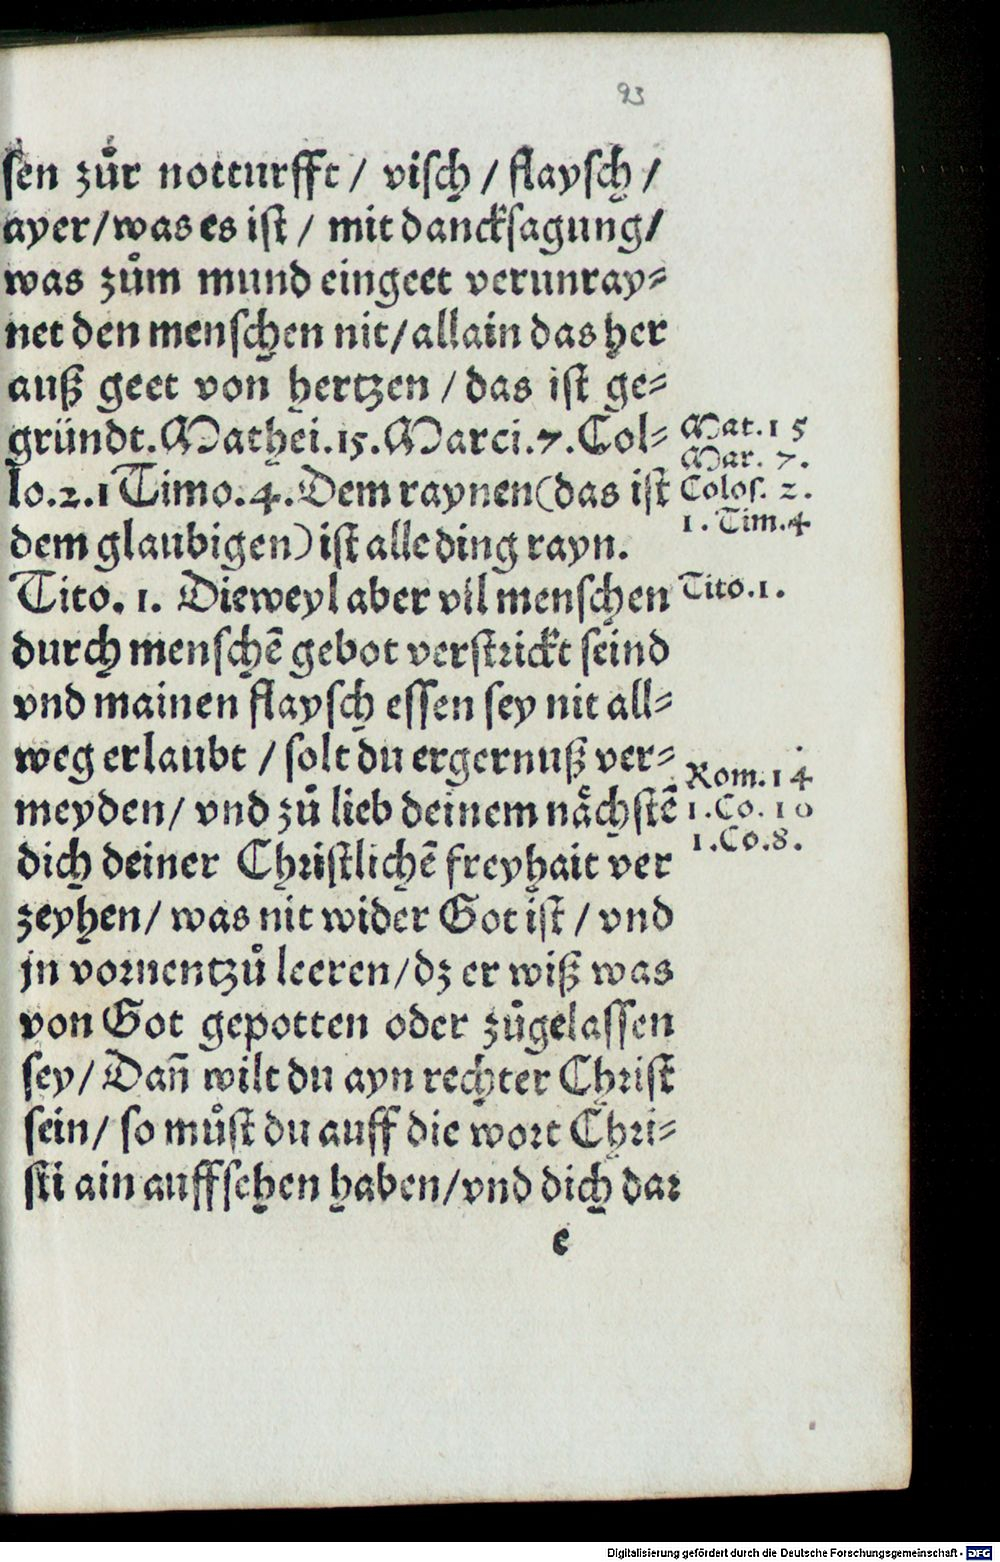 93
sen zuͦr notturfft / visch / flaysch /
ayer / was es ist / mit dancksagung /
was zuͦm mund eingeet verunray⸗
net den menschen nit / allain das her
auß geet von hertzen / das ist ge⸗
gründt. Mathei. 15. Marci. 7. Col⸗
lo. 2. 1 Timo. 4. Dem raynen (das ist
dem glaubigen) ist alle ding rayn.
Tito. 1. Dieweyl aber vil menschen
durch menschē gebot verstrickt seind
vnd mainen flaysch essen sey nit all⸗
weg erlaubt / solt du ergernuß ver⸗
meyden / vnd zuͦ lieb deinem naͤchstē
dich deiner Christlichē freyhait ver
zeyhen / was nit wider Got ist / vnd
jn vornentzuͦ leeren / dz er wiß was
von Got gepotten oder zuͦgelassen
sey / Dañ wilt du ayn rechter Christ
sein / so muͦst du auff die wort Chri⸗
sti ain auffsehen haben / vnd dich dar
e
Mat. 15
Mar. 7.
Colos. 2.
1. Tim. 4
Tito. 1.
Rom. 14
1. Co. 10
1. Co. 8.
Digitalisierung gefördert durch die Deutsche Forschungsgemeinschaft - DFG